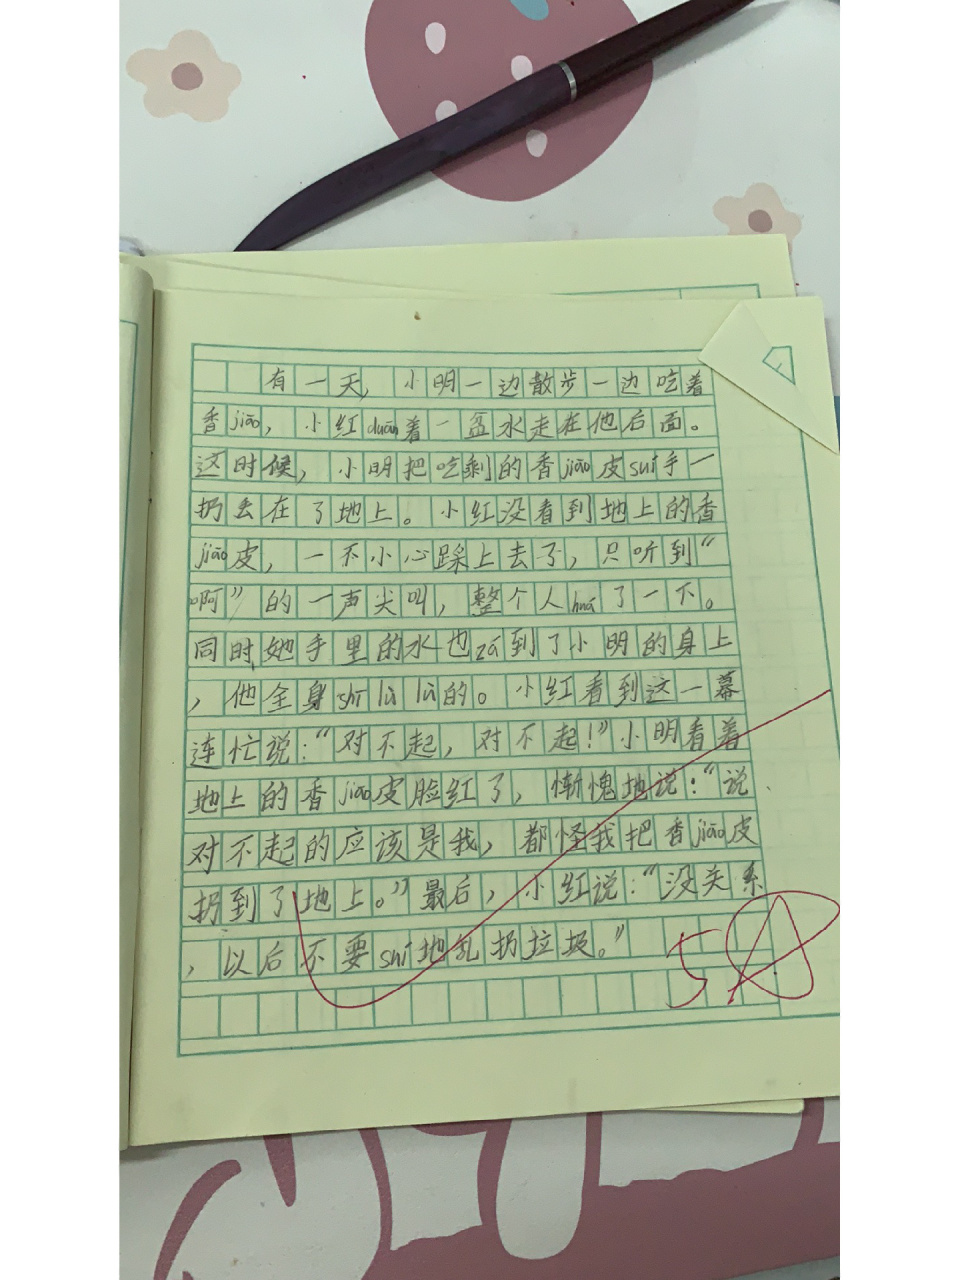 有一天，小明一边散步一边吃着
香jiāo，小红duān着一盆水走在他后面。
这时候，小明把吃剩的香jiāo皮suí手一
扔丢在了地上。小红没看到地上的香
jiāo皮，一不小心踩上去了，只听到“
啊”的一声尖叫，整个人huá了一下。
同时她手里的水也zá到了小明的身上
，他全身shī lù lù的。小红看到这一幕
连忙说：“对不起，对不起！”小明看着
地上的香jiāo皮脸红了，惭愧地说：“说
对不起的应该是我，都怪我把香jiāo皮
扔到了地上。”最后，小红说：“没关系
，以后不要suí地乱扔拉圾。”
5A